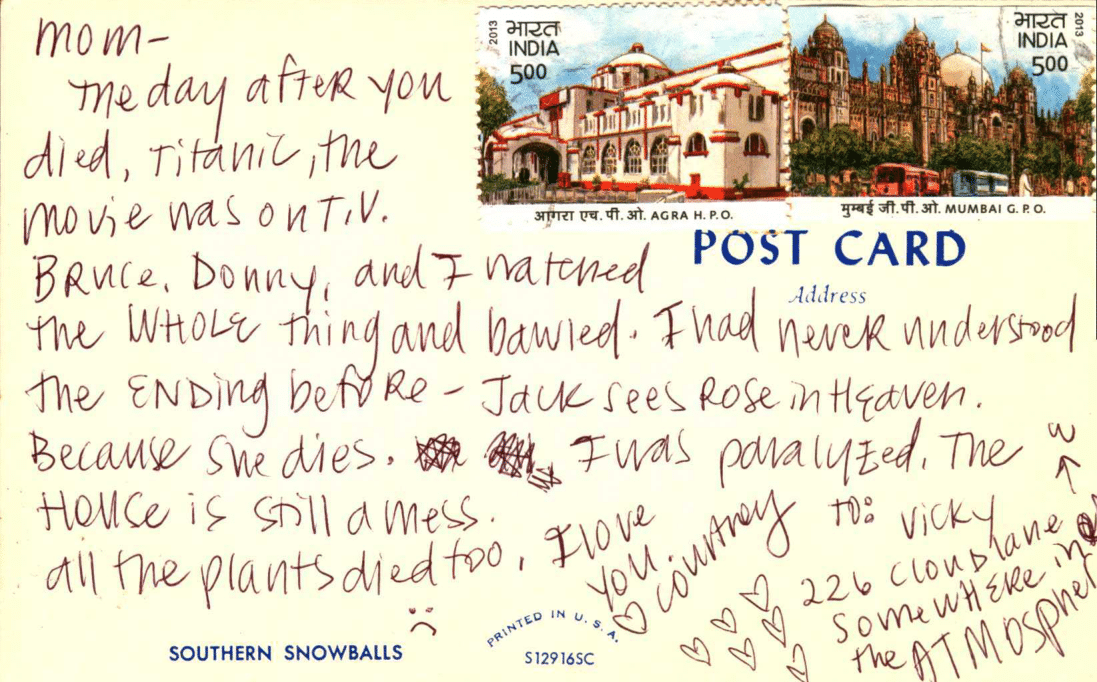 mom-
the day after you
died, Titanic, the
movie was on T.V.
Bruce, Donny, and I watched
the WHOLE thing and bawled. I had never understood
the ENDing before - Jack sees Rose in Heaven.
Because she dies. I was paralyzed. The
House is still a mess.
all the plants died too.
I love
you.
Courtney
to: Vicky
226 Cloud lane
somewhere in
the ATMOSphere
2013
भारत
INDIA
500
आगरा एच.पी.ओ. AGRA H.P.O.
भारत
INDIA
500
2013
मुम्बई जी.पी.ओ. MUMBAI G.P.O.
POST CARD
Address
SOUTHERN SNOWBALLS
PRINTED IN U.S.A.
S12916SC